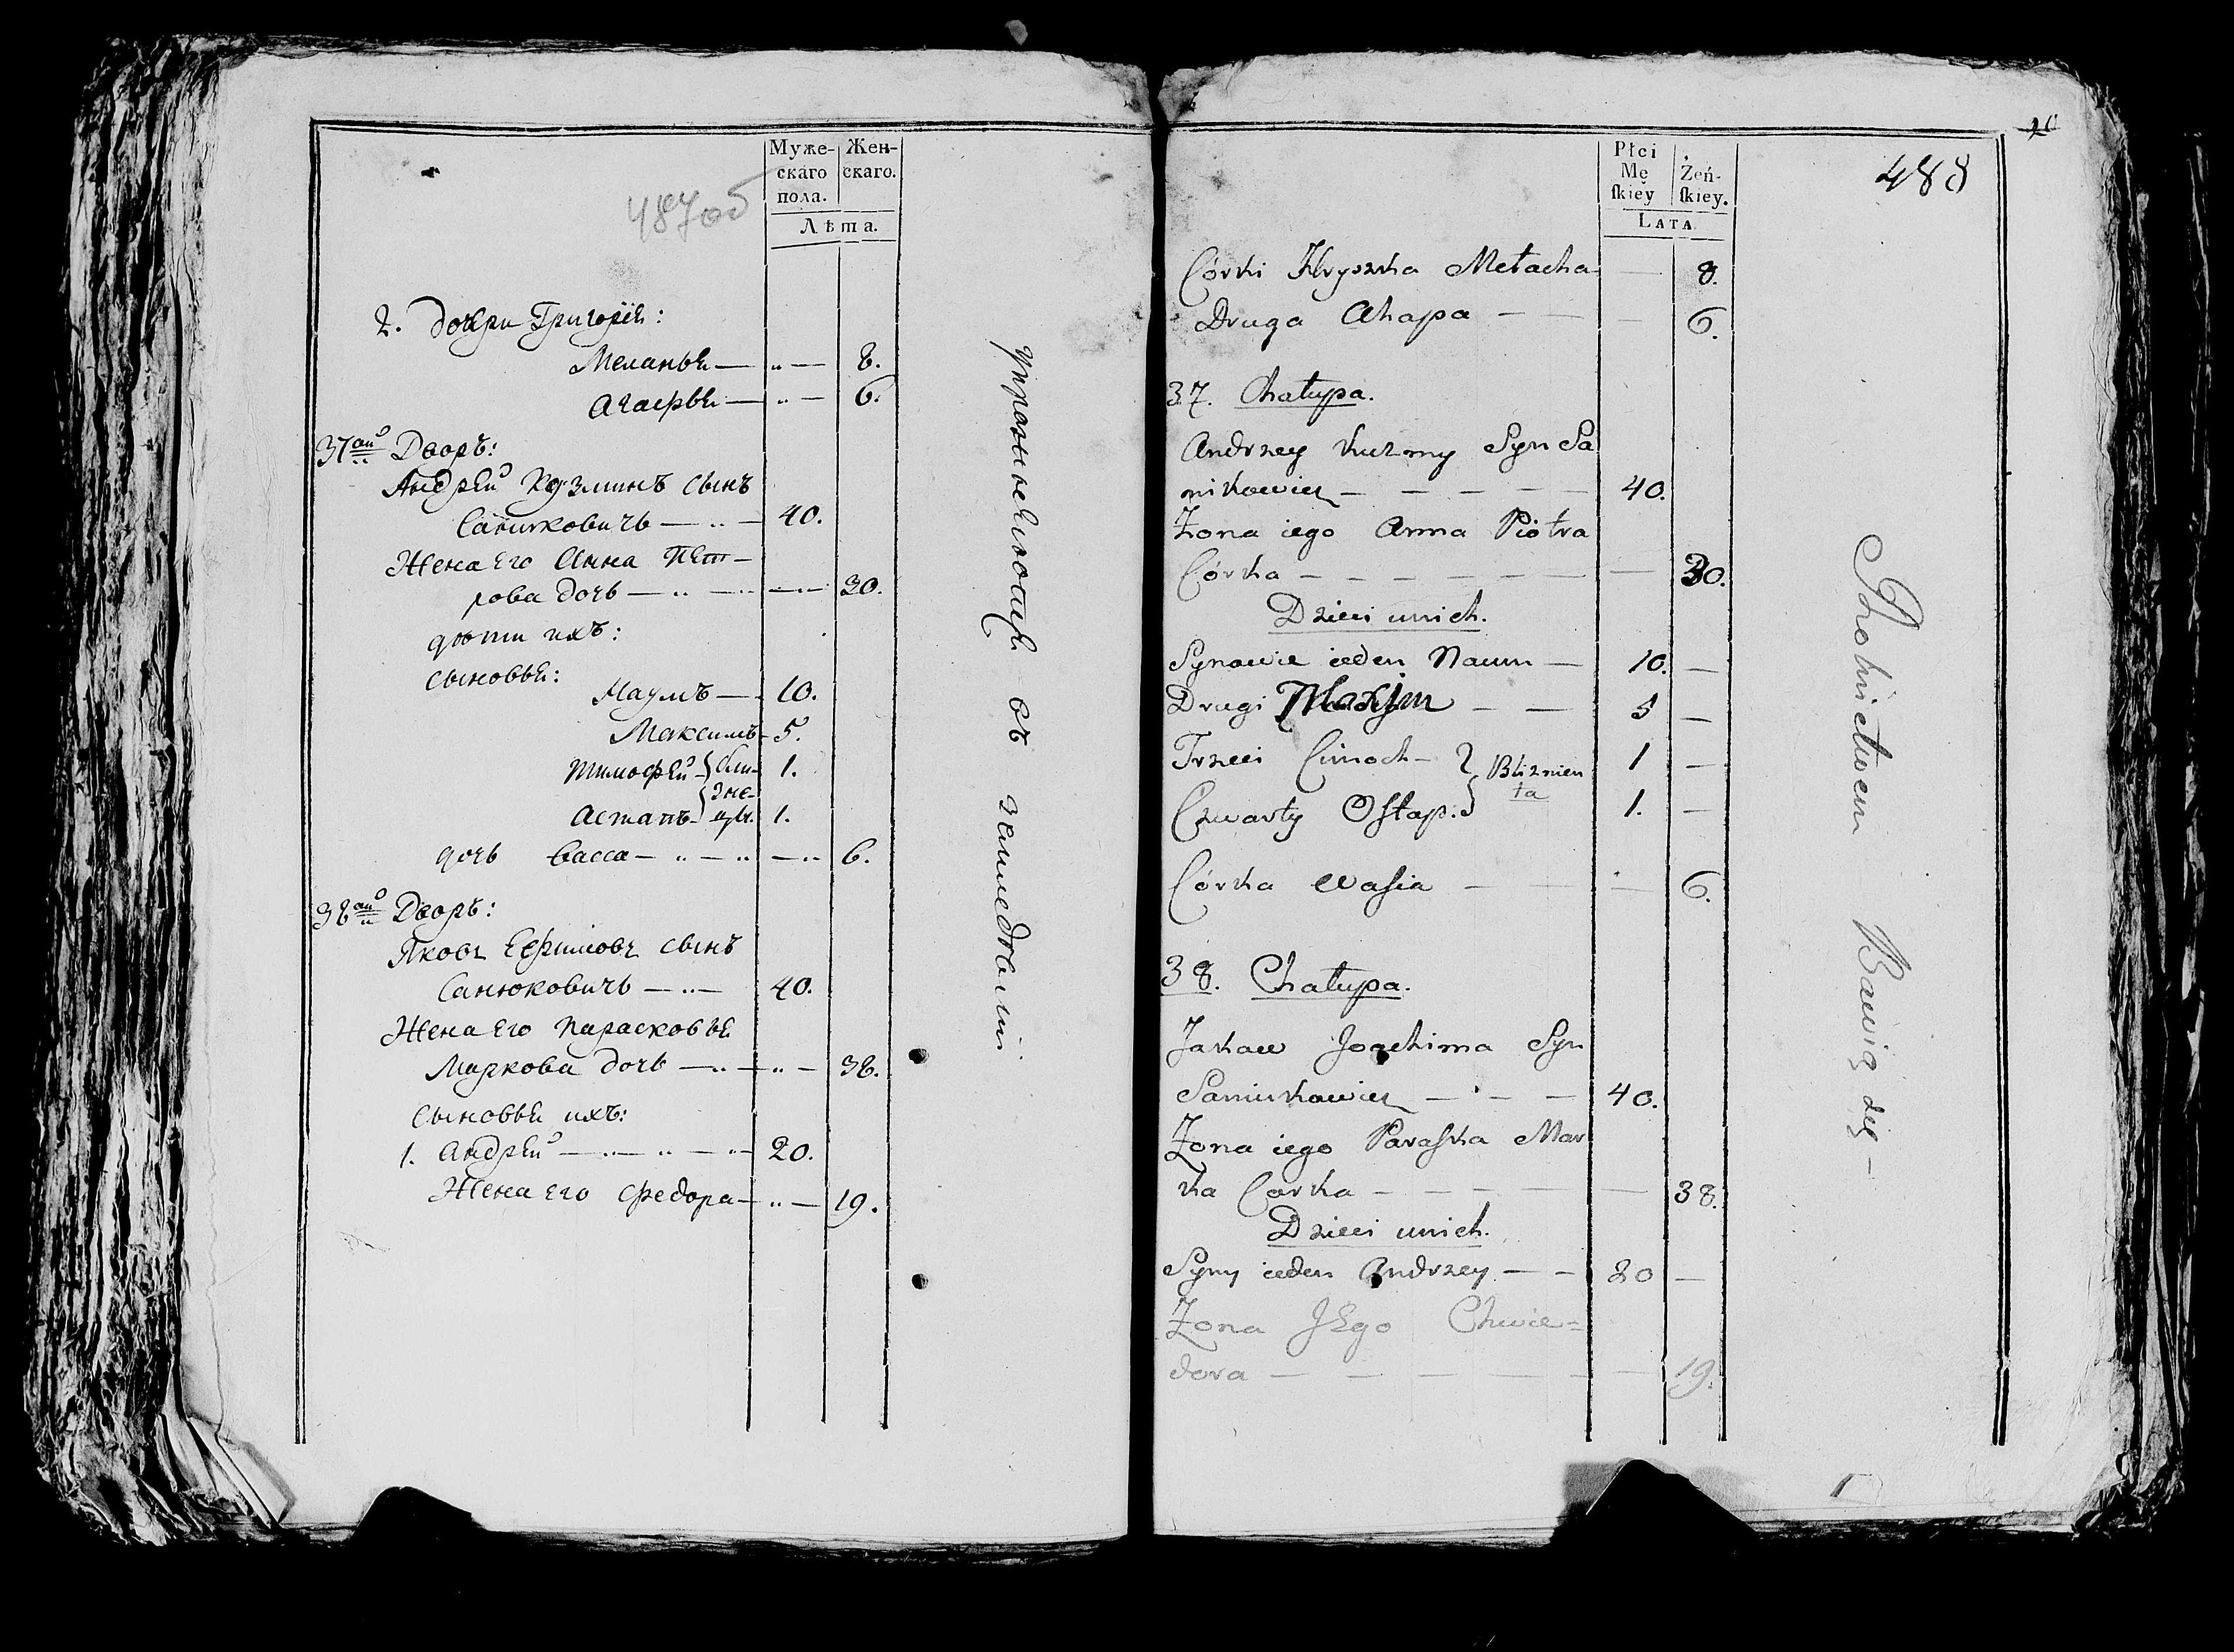 487об
Муже-
скаго
пола.
Жен-
скаго.
Лѣта.
2. дочери Григорія:
Меланья — „ — 8.
Агафья — „ — 6.
37ый Дворъ:
Андрей Кузминъ сынъ
Санюковичь — „ — 40.
Жена его Анна Пет-
рова дочь — „ — „ — 30.
дѣти ихъ:
сыновья:
Наумъ — 10.
Максимъ — 5.
Тимофей — } близ- 1.
Астапъ — } нецы. 1.
дочь Васса — „ — „ — „ 6.
38ый Дворъ:
Яковъ Ефимовъ сынъ
Санюковичь — „ — 40.
Жена его Парасковья
Маркова дочь — „ — „ — 38.
Сыновья ихъ:
1. Андрей — „ — „ — „ 20.
Жена его Федора — „ — 19.
упражняются въ земледѣліи
488
Płci
Mę
ſkiey
Żeń-
ſkiey.
LATA.
Córki Hryszka Mełacha — 8.
Druga Ahapa — — — 6.
37. Chałupa.
Andrzey Kuzmy Syn Sa
niukowicz — — — — — 40.
Żona iego Anna Piotra
Córka — — — — — — — 30.
Dzieci unich.
Synowie ieden Naum — 10. —
Drugi Maxym — — 5 —
Trzeci Cimoch — } Bliznien 1 —
Czwarty Oſtap. } ta 1. —
Córka Waſia — — — 6.
38. Chałupa.
Jakow Joachima Syn
Saniukowicz — — — 40.
Żona iego Paraſka Mar
ka Corka — — — — — 38.
Dzieci unich.
Syny ieden Andrzey — — 20 —
Żona JEgo Chwie=
dora — — — — — — 19.
Rhobnictwem Bawią się —